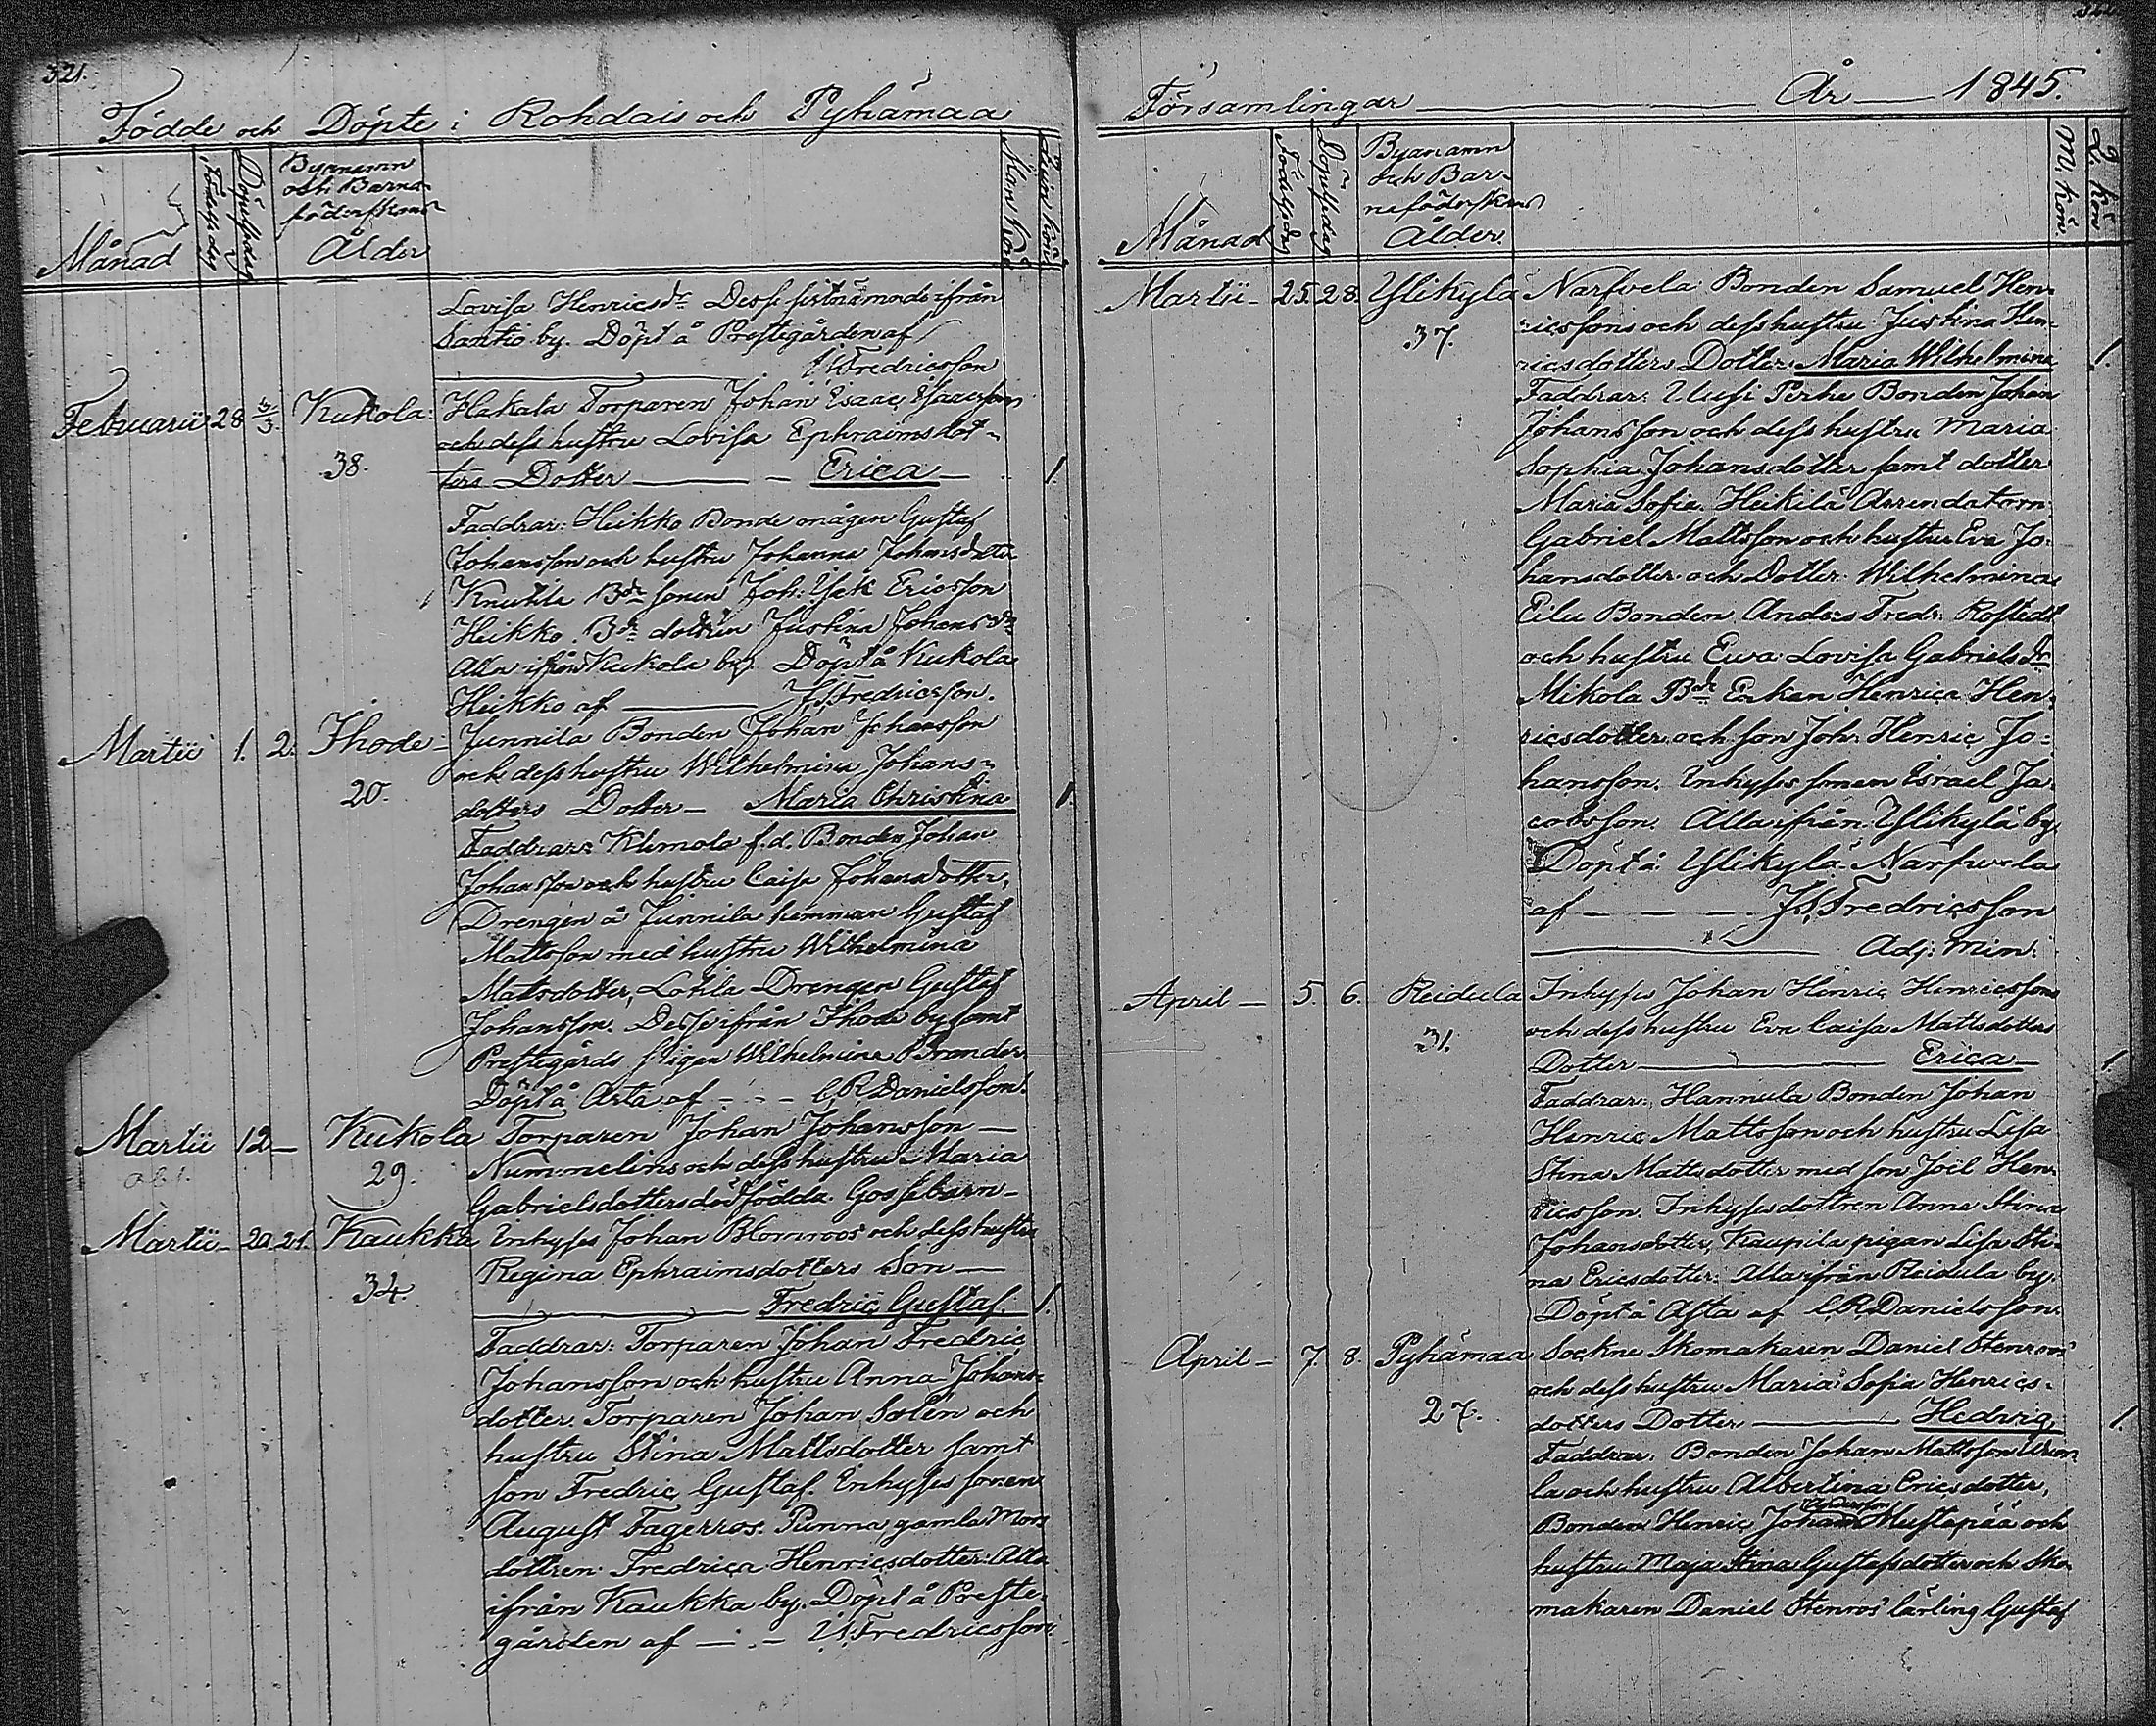 321.
Födde och Döpte i Rohdais och Pyhämaa
Månad
Födelsedag
Döpelsedag
Byanamn
och Barna-
föderskans
Ålder
Man kön
Qvin kön
Lovisa Henricsdr Desse sistnämnde ifrån
Santio by. Döpt å Prestegården af
Fredricsson
Februarii 28 2/3. Kukola: Hakala Torparen Johan Isaac Isaacsson
och dess hustru Lovisa Ephraimsdot-
38.
ters Dotter — Erica — 1
Faddrar: Heikko Bonde onågen Gustaf
Johansson och hustru Johanna Johansdotter
Knutila Bde sonen Joh: Isak Ericsson
Heikko Bde dottren Justina Johansdr
Alla ifrån Kukola by. Döpt å Kukola
Heikko af — Fredricsson.
Martii 1. 2. Ihode - Junnila Bonden Johan Johansson
och dess hustru Wilhelmina Johans-
20.
dotters Dotter — Maria Christina 1
Faddrar: Klemola f.d. Bonden Johan
Johansson och hustru Caisa Johansdotter,
Drengen å Junnila hemman Gustaf
Mattsson med hustru Wilhelmina
Matsdotter, Drengen Gustaf
Johansson. Desse ifrån Ihode by samt
Prestegårds pigan Wilhelmina Brander.
Döpt å Arta af - - - C.R. Danielsson.
Martii 12 — Kukola Torparen Johan Johansson —
29.
Nummelins och dess hustru Maria
Gabrielsdotters dödfödda Gossebarn —
Martii - 20. 21. Kaukka Inhyses Johan Blomroos och dess hustru
Regina Ephraimsdotters Son —
34.
Fredric Gustaf. 1.
Faddrar: Torparen Johan Fredric
Johansson och hustru Anna Johans-
dotter. Torparen Johan Solén och
hustru Stina Mattsdotter samt
son Fredric Gustaf. Inhyses sonen
August Fagerros. Punna gamla Mors
dottren Fredrica Henricsdotter: Alla
ifrån Kaukka by. Döpt å Preste-
gården af — . — Fredricsson
Församlingar — År — 1845.
Månad
Födelsedag
Döpelsedag
Byanamn
och Bar-
neföderskans
Ålder.
M. kön.
Q. kön
Martii - 25. 28. Ylikylä Narfvela Bonden Samuel Hen-
ricssons och dess hustru Justina Hen-
37.
ricsdotters Dotter: Maria Wilhelmina 1
Faddrar: Uusi Perhe Bonden Johan
Johansson och dess hustru Maria
Sophia Johansdotter samt dotter
Maria Sofia. Heikilä Arrendatorn
Gabriel Mattsson och hustru Eva Jo-
hansdotter och Dotter Wilhelmina
Eilu Bonden Anders Fredr: Rostedt
och hustru Ewa Lovisa Gabrielsdr
Mikola Bde Enkan Henrica Hen-
ricsdotter och son Joh: Henric Jo-
hansson. Inhyses sonen Israel Ja-
cobsson. Alla ifrån Ylikylä by.
Döpt å Ylikylä Narfvela
af — — — Fredricsson
Adj: Min:
April — 5. 6. Reidula Inhyses Johan Henric Henricssons
och dess hustru Eva Caisa Mattsdotters
31.
Dotter — Erica — 1
Faddrar: Hannula Bonden Johan
Henric Mattsson och hustru Lisa
Stina Mattsdotter med son Joël Hen-
ricsson. Inhysesdottren Anna Stina
Johansdotter, Kaupila pigan Lisa Sti-
na Ericsdotter. Alla ifrån Reidula by.
Döpt å Asta af C.R. Danielsson.
April — 7. 8. Pyhämaa Sockne Skomakaren Daniel Stenroos
och dess hustru Maria Sofia Henrics-
27.
dotters Dotter — Hedwig. 1.
Faddrar: Bonden Johan Mattsson
la och hustru Albertina Ericsdotter,
Bonden Henric Johan Andersson Mustapää och
hustru Maja Stina Gustafsdotter och Sko-
makaren Daniel Stenros' lärling Gustaf